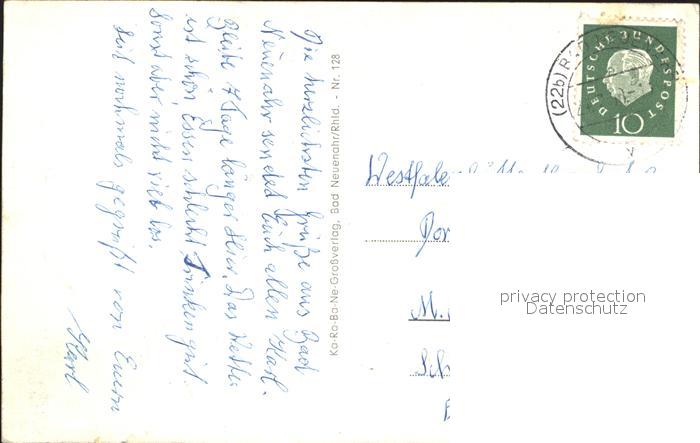 Die herzlichsten Grüße aus Bad
Neuenahr sendet Euch allen Karl.
Bleibe 7 Tage länger hier. Das Wetter
ist schön Essen schlecht Trinken gut.
Sonst aber nicht viel los.
Seid nochmals gegrüßt von Euern
Karl
Ka-Ro-Ba-Ne-Großverlag, Bad Neuenahr/Rhld. - Nr. 128
(22b)
DEUTSCHE BUNDESPOST
10
Westfale
Dor
M.
Sch
privacy protection
Datenschutz